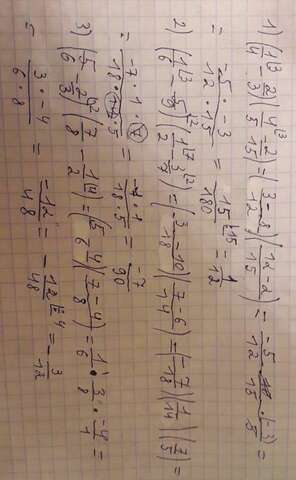 1) (1/4 ⌊3 - 2/3)(4/5 ⌊3 - 2/15) = (3-8/12)(12-2/15) = -5/12 · (-3)/5 =
= -5·-3/12·15 = 15/180 ⌊15 = 1/12
2) (1/6 ⌊3 - 5/9 ⌊2)(1/2 ⌊7 - 3/7 ⌊2) = (3-10/18)(7-6/14) = (-7/18)(1/14)(7/5) =
= -7·1·7/18·14·5 = -1·1/18·5 = -7/90
3) (5/6 - 2/3 ⌊2)(7/8 - 1/2 ⌊4) = (5-4/6)(7-4/8) = 1/6 · 3/8 · -4/1 =
= 3·-4/6·8 = -12/48 = -12/48 ⌊4 = -3/12